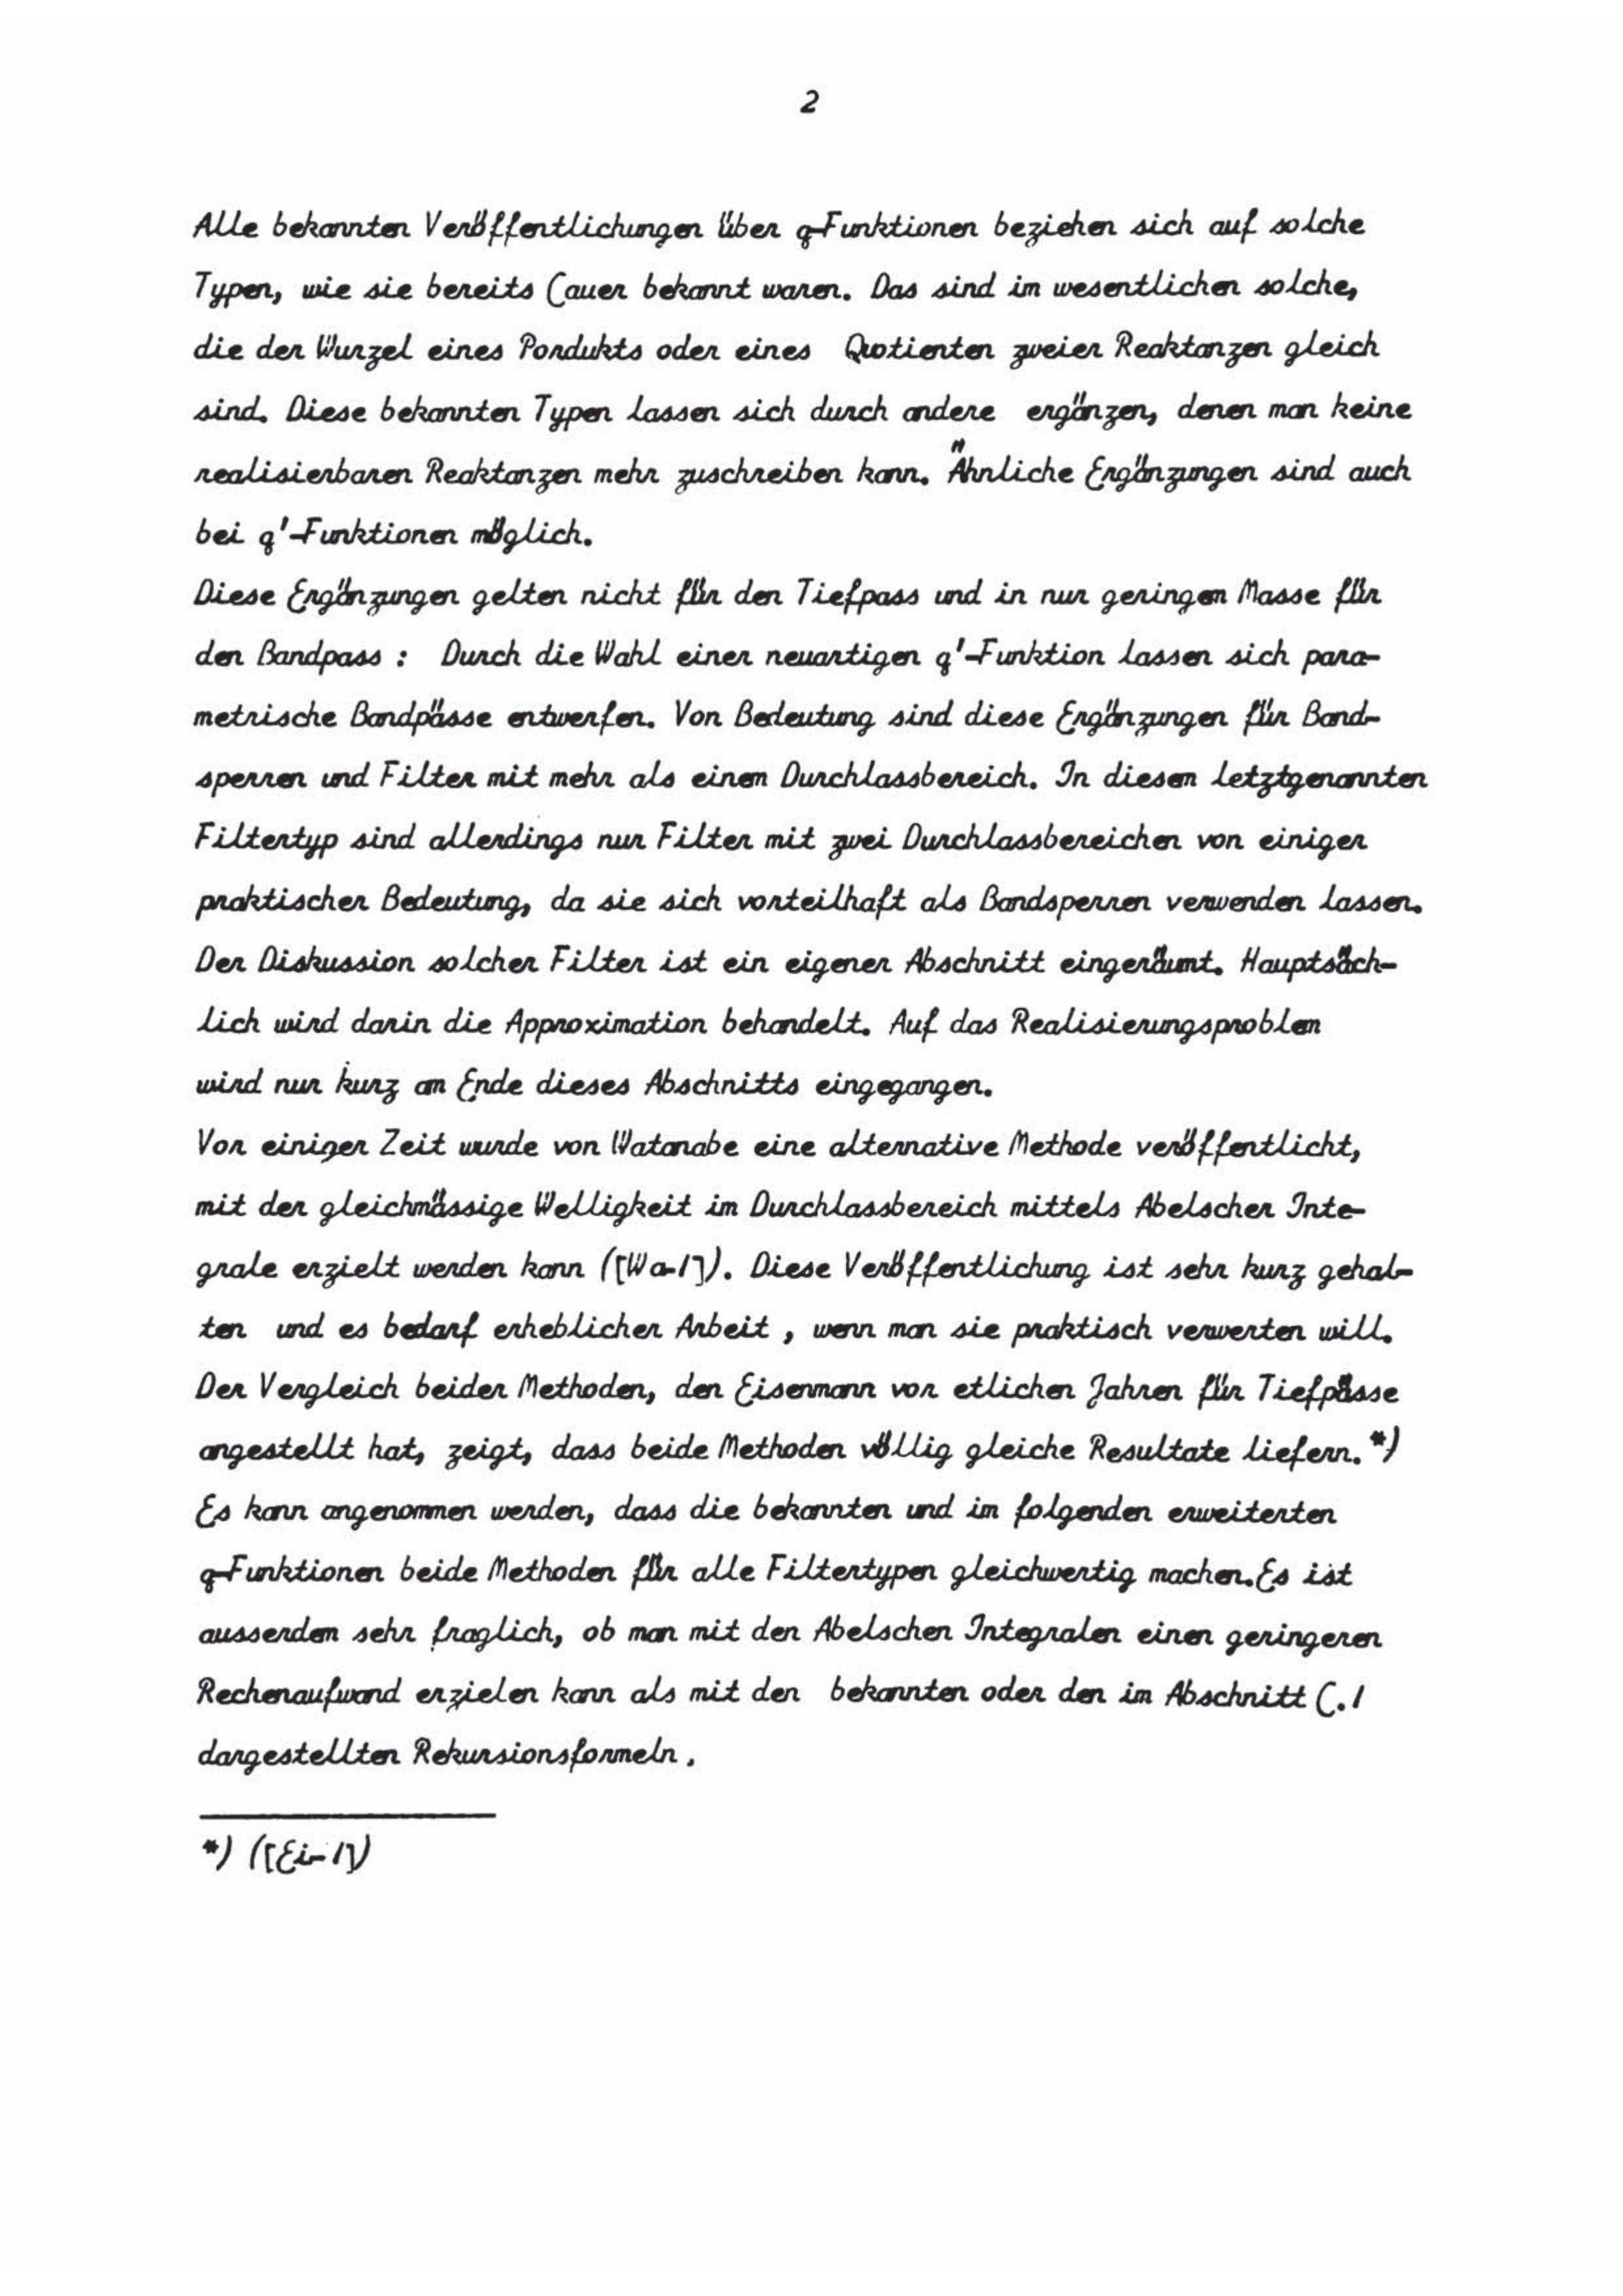 2
Alle bekannten Veröffentlichungen über q-Funktionen beziehen sich auf solche
Typen, wie sie bereits Cauer bekannt waren. Das sind im wesentlichen solche,
die der Wurzel eines Pordukts oder eines Quotienten zweier Reaktanzen gleich
sind. Diese bekannten Typen lassen sich durch andere ergänzen, denen man keine
realisierbaren Reaktanzen mehr zuschreiben kann. Ähnliche Ergänzungen sind auch
bei q'-Funktionen möglich.
Diese Ergänzungen gelten nicht für den Tiefpass und in nur geringem Masse für
den Bandpass : Durch die Wahl einer neuartigen q'-Funktion lassen sich para-
metrische Bandpässe entwerfen. Von Bedeutung sind diese Ergänzungen für Band-
sperren und Filter mit mehr als einem Durchlassbereich. In diesem letztgenannten
Filtertyp sind allerdings nur Filter mit zwei Durchlassbereichen von einiger
praktischer Bedeutung, da sie sich vorteilhaft als Bandsperren verwenden lassen.
Der Diskussion solcher Filter ist ein eigener Abschnitt eingeräumt. Hauptsäch-
lich wird darin die Approximation behandelt. Auf das Realisierungsproblem
wird nur kurz am Ende dieses Abschnitts eingegangen.
Vor einiger Zeit wurde von Watanabe eine alternative Methode veröffentlicht,
mit der gleichmässige Welligkeit im Durchlassbereich mittels Abelscher Inte-
grale erzielt werden kann ([Wa-1]). Diese Veröffentlichung ist sehr kurz gehal-
ten und es bedarf erheblicher Arbeit , wenn man sie praktisch verwerten will.
Der Vergleich beider Methoden, den Eisenmann vor etlichen Jahren für Tiefpässe
angestellt hat, zeigt, dass beide Methoden völlig gleiche Resultate liefern. *)
Es kann angenommen werden, dass die bekannten und im folgenden erweiterten
q-Funktionen beide Methoden für alle Filtertypen gleichwertig machen. Es ist
ausserdem sehr fraglich, ob man mit den Abelschen Integralen einen geringeren
Rechenaufwand erzielen kann als mit den bekannten oder den im Abschnitt C.1
dargestellten Rekursionsformeln.
*) ([Ei-1])